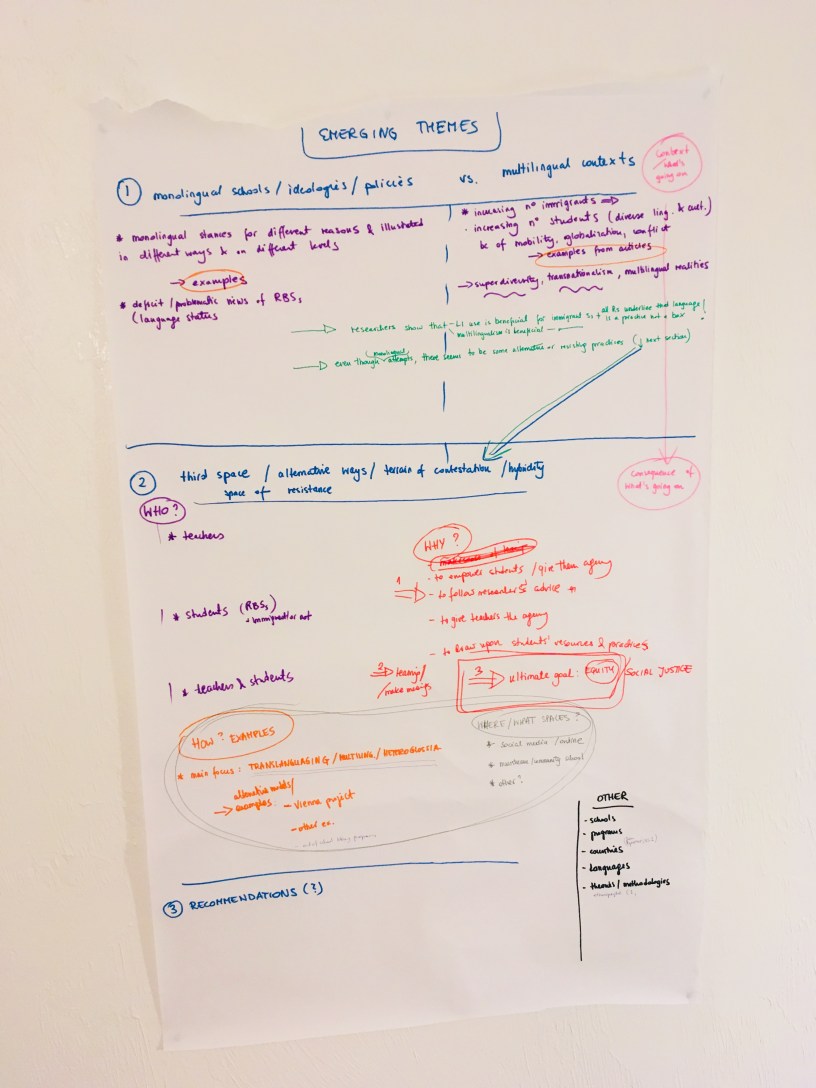 EMERGING THEMES
① monolingual schools / ideologies / policies vs. multilingual contexts
context
what's
going on
* monolingual stances for different reasons & illustrated
in different ways & on different levels
→ examples
* deficit / problematic views of RBSs
(language status
* increasing n° immigrants ⇒
· increasing n° students (diverse ling. & cult.)
bc of mobility, globalization, conflict
→ examples from articles
→ superdiversity, transnationalism, multilingual realities
→ researchers show that – L1 use is beneficial for immigrant Ss +
multilingualism is beneficial
all Rs underline that language
is a practice not a box !
→ even though attempts, there seems to be some alternative or resisting practices (↓ next section)
② third space / alternative ways / terrain of contestation / hybridity
space of resistance
consequence of
what's going on
WHO?
* teachers
* students (RBSs)
+ immigrant/or not
* teachers & students
WHY?
1 ⇒
- to empower students / give them agency
- to follow researchers' advice
- to give teachers the agency
- to draw upon students' resources & practices
2 ⇒
/ make meaning
3 ⇒ ultimate goal: EQUITY / SOCIAL JUSTICE
HOW? EXAMPLES
* main focus: TRANSLANGUAGING / MULTILING. / HETEROGLOSSIA
alternative
→ examples: – Vienna project
– other ex.
WHERE / WHAT SPACES?
* social media / online
* school
* other?
OTHER
- schools
- programs
- countries
- languages
- theories / methodologies
③ RECOMMENDATIONS (?)